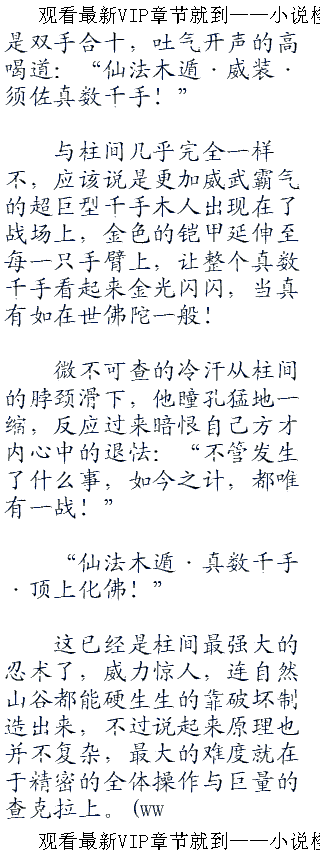 观看最新VIP章节就到——小说检
是双手合十，吐气开声的高
喝道：“仙法木遁·威装·
须佐真数千手！”
与柱间几乎完全一样
不，应该说是更加威武霸气
的超巨型千手木人出现在了
战场上，金色的铠甲延伸至
每一只手臂上，让整个真数
千手看起来金光闪闪，当真
有如在世佛陀一般！
微不可查的冷汗从柱间
的脖颈滑下，他瞳孔猛地一
缩，反应过来暗恨自己方才
内心中的退怯：“不管发生
了什么事，如今之计，都唯
有一战！”
“仙法木遁·真数千手
·顶上化佛！”
这已经是柱间最强大的
忍术了，威力惊人，连自然
山谷都能硬生生的靠破坏制
造出来，不过说起来原理也
并不复杂，最大的难度就在
于精密的全体操作与巨量的
查克拉上。(ww
观看最新VIP章节就到——小说检